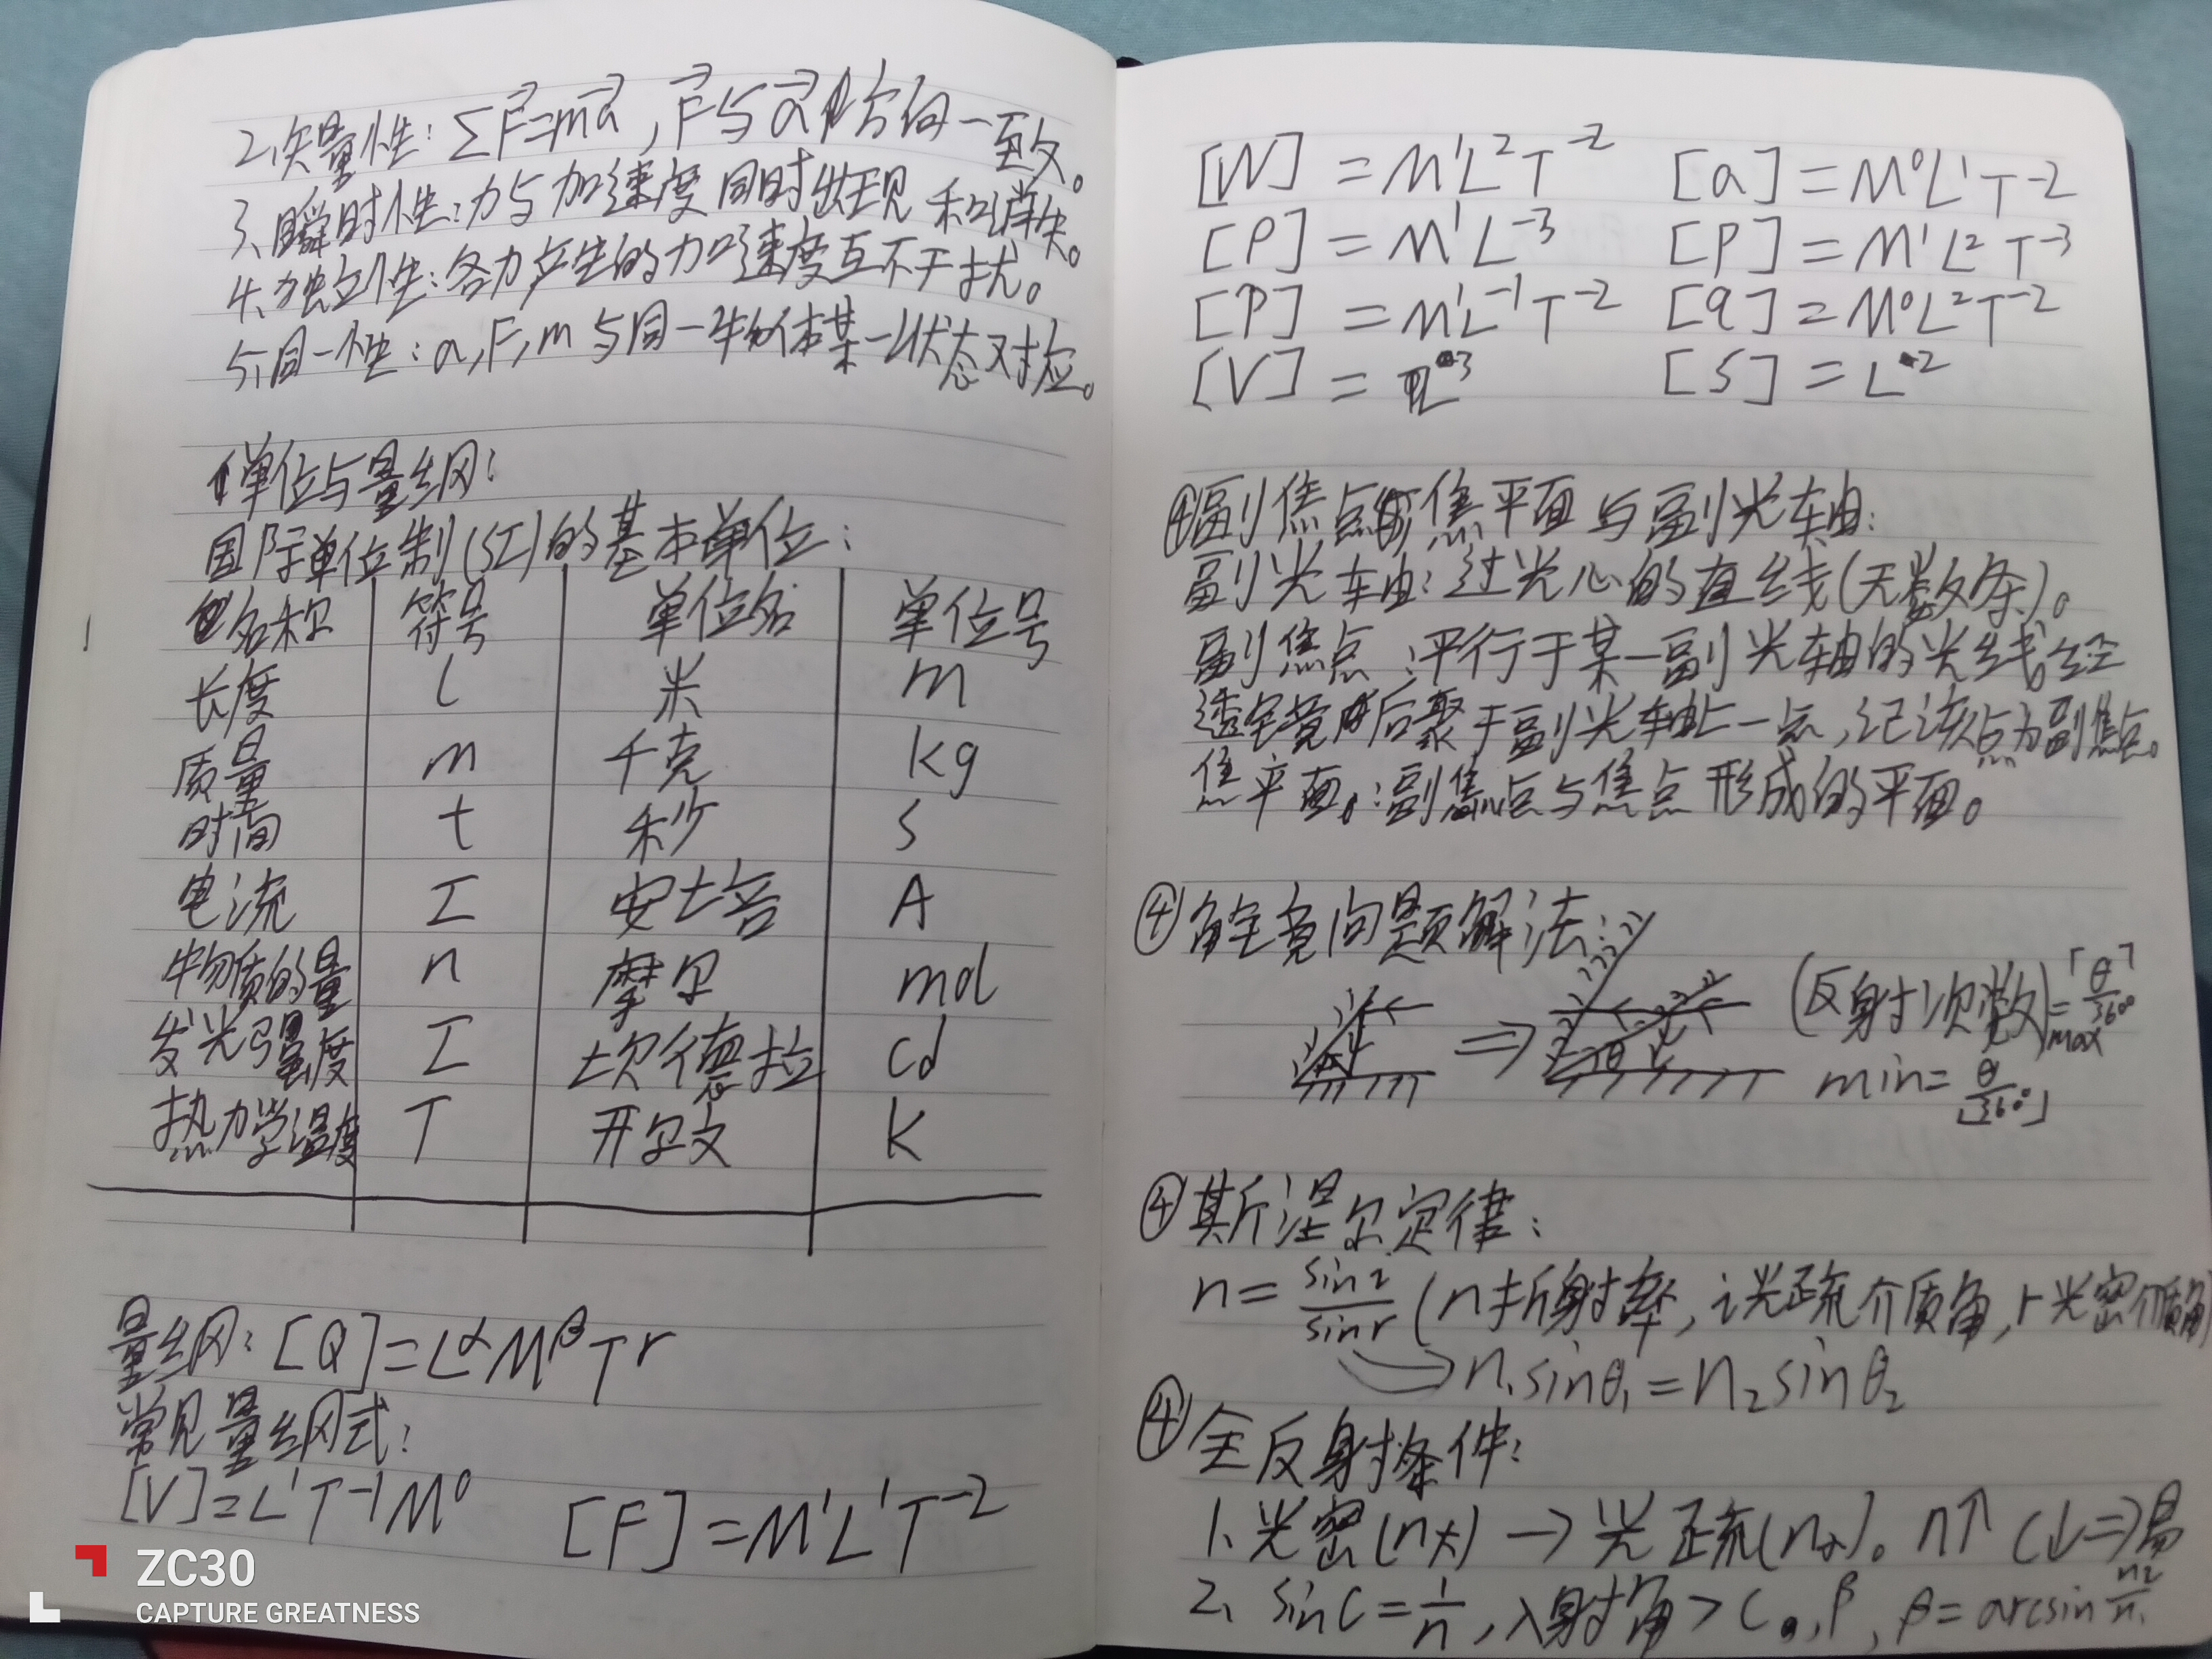 2、矢量性：∑F⃗=ma⃗，F⃗与a⃗方向一致。
3、瞬时性：力与加速度同时出现和消失。
4、独立性：各力产生的加速度互不干扰。
5、同一性：a,F,m与同一物体某一状态对应。
单位与量纲：
国际单位制(SI)的基本单位：
名称 符号 单位名 单位号
长度 l 米 m
质量 m 千克 kg
时间 t 秒 s
电流 I 安培 A
物质的量 n 摩尔 mol
发光强度 I 坎德拉 cd
热力学温度 T 开尔文 K
量纲：[Q]=L^α M^β T^r
常见量纲式：
[V]=L^1 T^-1 M^0 [F]=M^1 L^1 T^-2
ZC30
CAPTURE GREATNESS
[W]=M^1 L^2 T^-2 [a]=M^0 L^1 T^-2
[ρ]=M^1 L^-3 [P]=M^1 L^2 T^-3
[P]=M^1 L^-1 T^-2 [q]=M^0 L^2 T^-2
[V]=L^3 [S]=L^2
④副焦点 焦平面与副光轴：
副光轴：过光心的直线(无数条)。
副焦点：平行于某一副光轴的光线经
透镜后聚于副光轴上一点，记该点为副焦点。
焦平面：副焦点与焦点形成的平面。
④角镜问题解法：
⇒ (反射次数)max=⌈θ/360°⌉
min=⌊θ/360°⌋
④斯涅尔定律：
n=sin i/sin r (n折射率，i光疏介质角，r光密介质角)
n₁sinθ₁=n₂sinθ₂
④全反射条件：
1、光密(n大)→光疏(n小)。n↑ C↓⇒易
2、sinC=1/n，入射角>C，β，β=arcsin n₂/n₁